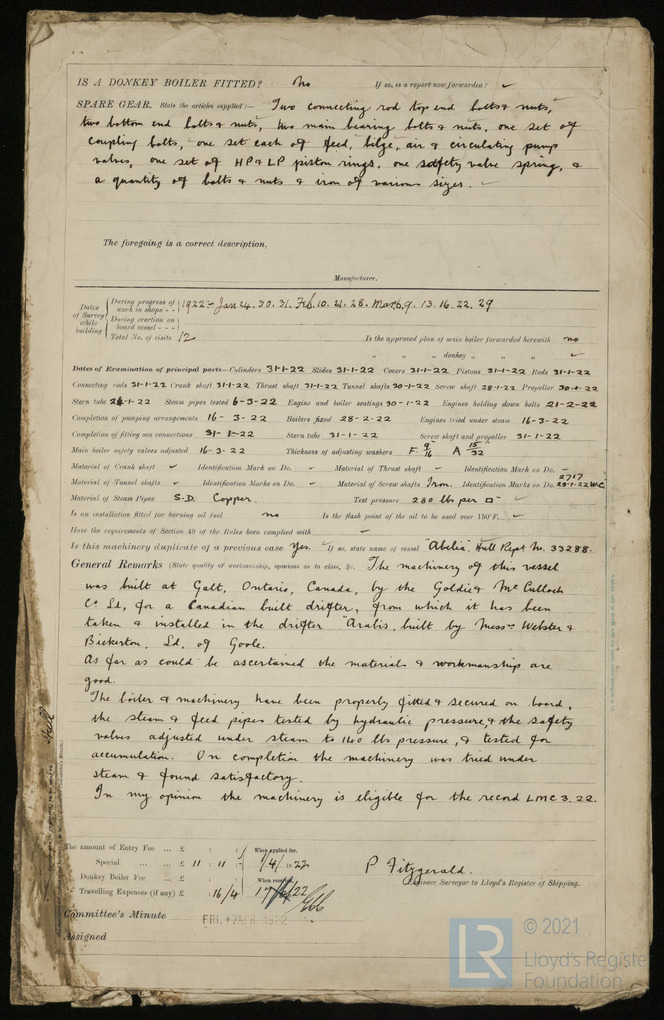 IS A DONKEY BOILER FITTED? No If so, is a report now forwarded? ✓
SPARE GEAR. State the articles supplied:— Two connecting rod top end bolts & nuts,
two bottom end bolts & nuts, two main bearing bolts & nuts, one set of
coupling bolts, one set each of feed, bilge, air & circulating pump
valves, one set of HP & LP piston rings, one safety valve spring, &
a quantity of bolts & nuts & iron of various sizes. ✓
The foregoing is a correct description,
Manufacturer.
Dates of Survey while building
During progress of work in shops - - 1922:- Jan 24. 30. 31. Feb. 10. 21. 28. Mar. 6. 9. 13. 16. 22. 29
During erection on board vessel - - -
Total No. of visits 12 Is the approved plan of main boiler forwarded herewith no
" " " donkey " " ✓
Dates of Examination of principal parts—Cylinders 31-1-22 Slides 31-1-22 Covers 31-1-22 Pistons 31-1-22 Rods 31-1-22
Connecting rods 31-1-22 Crank shaft 31-1-22 Thrust shaft 31-1-22 Tunnel shafts 30-1-22 Screw shaft 28-1-22 Propeller 30-1-22
Stern tube 24-1-22 Steam pipes tested 6-3-22 Engine and boiler seatings 30-1-22 Engines holding down bolts 21-2-22
Completion of pumping arrangements 16-3-22 Boilers fixed 28-2-22 Engines tried under steam 16-3-22
Completion of fitting sea connections 31-1-22 Stern tube 31-1-22 Screw shaft and propeller 31-1-22
Main boiler safety valves adjusted 16-3-22 Thickness of adjusting washers F. 9/16 A 15/32
Material of Crank shaft ✓ Identification Mark on Do. ✓ Material of Thrust shaft ✓ Identification Mark on Do. ✓
Material of Tunnel shafts ✓ Identification Marks on Do. ✓ Material of Screw shafts Iron. Identification Marks on Do. 2717 28-1-22 W.C
Material of Steam Pipes S.D. Copper. Test pressure 280 lbs per □" ✓
Is an installation fitted for burning oil fuel no Is the flash point of the oil to be used over 150°F. ✓
Have the requirements of Section 49 of the Rules been complied with ✓
Is this machinery duplicate of a previous case Yes. If so, state name of vessel "Abelia". Hull Rept No. 33288.
General Remarks (State quality of workmanship, opinions as to class, &c. The machinery of this vessel
was built at Galt, Ontario, Canada, by the Goldie & McCulloch
Co Ld, for a Canadian built drifter, from which it has been
taken & installed in the drifter "Arabis, built by Messrs Webster &
Bickerton, Ld, of Goole.
As far as could be ascertained the materials & workmanship are
good.
The boiler & machinery have been properly fitted & secured on board,
the steam & feed pipes tested by hydraulic pressure, & the safety
valves adjusted under steam to 140 lbs pressure, & tested for
accumulation. On completion the machinery was tried under
steam & found satisfactory.
In my opinion the machinery is eligible for the record LMC 3. 22.
Hull
The amount of Entry Fee ... £ : : When applied for,
Special ... ... £ 11 : 11 : 1/4/1922
Donkey Boiler Fee ... £ : : When received,
Travelling Expenses (if any) £ : 16/4
P Fitzgerald.
Engineer Surveyor to Lloyd's Register of Shipping.
Committee's Minute FRI. 7 APR. 1922
Assigned
LR © 2021
Lloyd's Registe
Foundation